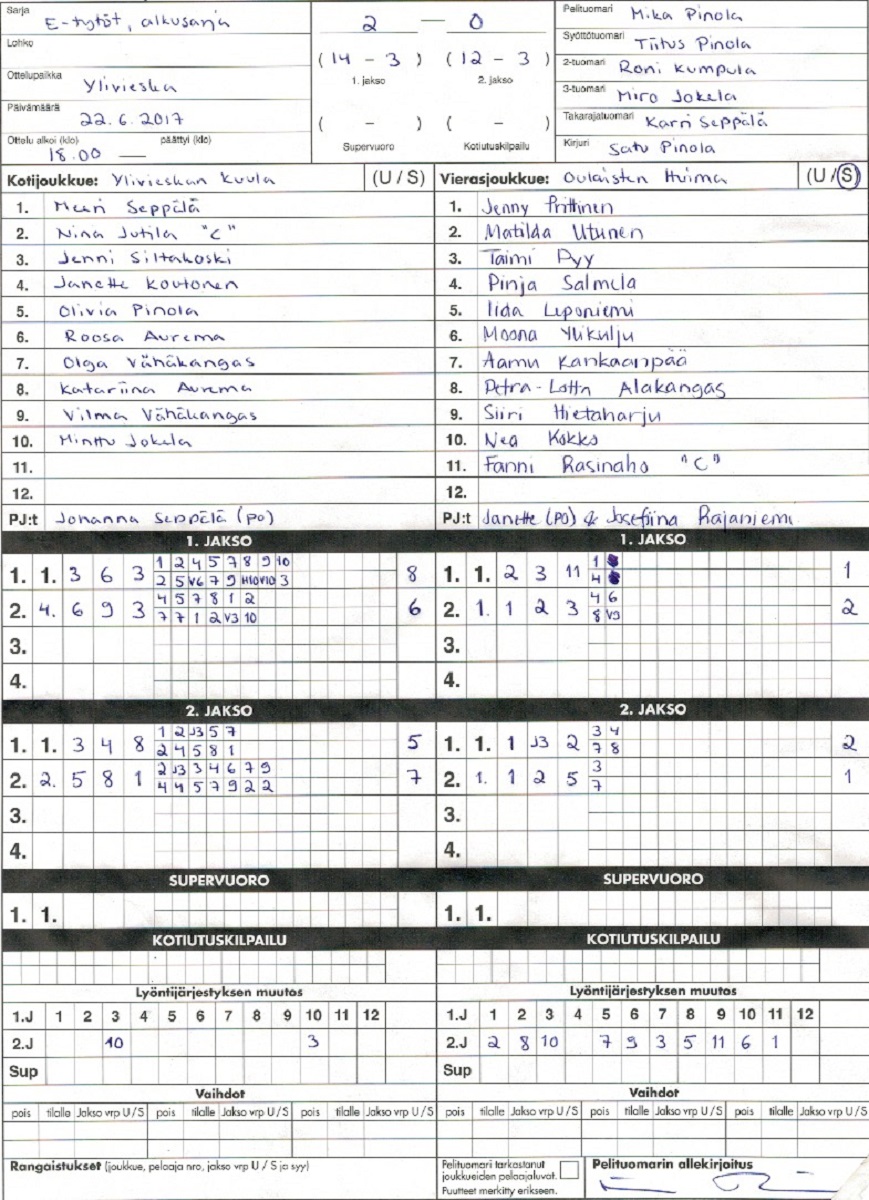 Sarja E-tytöt, alkusarja
Lohko
Ottelupaikka Ylivieska
Päivämäärä 22.6.2017
Ottelu alkoi (klo) päättyi (klo)
18.00 —
2 — 0
(14 - 3) (12 - 3)
1. jakso 2. jakso
( - ) ( - )
Supervuoro Kotiutuskilpailu
Pelituomari Mika Pinola
Syöttötuomari Tiitus Pinola
2-tuomari Roni Kumpula
3-tuomari Miro Jokela
Takarajatuomari Karri Seppälä
Kirjuri Satu Pinola
Kotijoukkue: Ylivieskan Kuula (U / S)
1. Meeri Seppälä
2. Nina Jutila "C"
3. Jenni Siltakoski
4. Janette Koutonen
5. Olivia Pinola
6. Roosa Aurema
7. Olga Vähäkangas
8. Katariina Aurema
9. Vilma Vähäkangas
10. Minttu Jokela
11.
12.
PJ:t Johanna Seppälä (PO)
Vierasjoukkue: Oulaisten Huima (U / S)
1. Jenny Prittinen
2. Matilda Utunen
3. Taimi Pyy
4. Pinja Salmela
5. Iida Leponiemi
6. Moona Ylikulju
7. Aamu Kankaanpää
8. Petra-Lotta Alakangas
9. Siiri Hietaharju
10. Nea Kokko
11. Fanni Rasinaho "C"
12.
PJ:t Janette (PO) & Josefiina Rajaniemi
1. JAKSO
1. 1. 3 6 3 1 2 4 5 7 8 9 10
2 5 V6 7 9 H10 V10 3 8
2. 4. 6 9 3 4 5 7 8 1 2
7 7 1 2 V3 10 6
3.
4.
1. JAKSO
1. 1. 2 3 11 1
4 1
2. 1. 1 2 3 4 6
8 V9 2
3.
4.
2. JAKSO
1. 1. 3 4 8 1 2 J3 5 7
2 4 5 8 1 5
2. 2. 5 8 1 2 J3 3 4 6 7 9
4 4 5 7 9 2 2 7
3.
4.
2. JAKSO
1. 1. 1 J3 2 3 4
7 8 2
2. 1. 1 2 5 3
7 1
3.
4.
SUPERVUORO
1. 1.
SUPERVUORO
1. 1.
KOTIUTUSKILPAILU
KOTIUTUSKILPAILU
Lyöntijärjestyksen muutos
1.J 1 2 3 4 5 6 7 8 9 10 11 12
2.J 10 3
Sup
Lyöntijärjestyksen muutos
1.J 1 2 3 4 5 6 7 8 9 10 11 12
2.J 2 8 10 7 9 3 5 11 6 1
Sup
Vaihdot
pois tilalle Jakso vrp U / S pois tilalle Jakso vrp U / S pois tilalle Jakso vrp U / S
Vaihdot
pois tilalle Jakso vrp U / S pois tilalle Jakso vrp U / S pois tilalle Jakso vrp U / S
Rangaistukset (joukkue, pelaaja nro, jakso vrp U / S ja syy)
Pelituomari tarkastanut
joukkueiden pelaajaluvat.
Puutteet merkitty erikseen.
Pelituomarin allekirjoitus